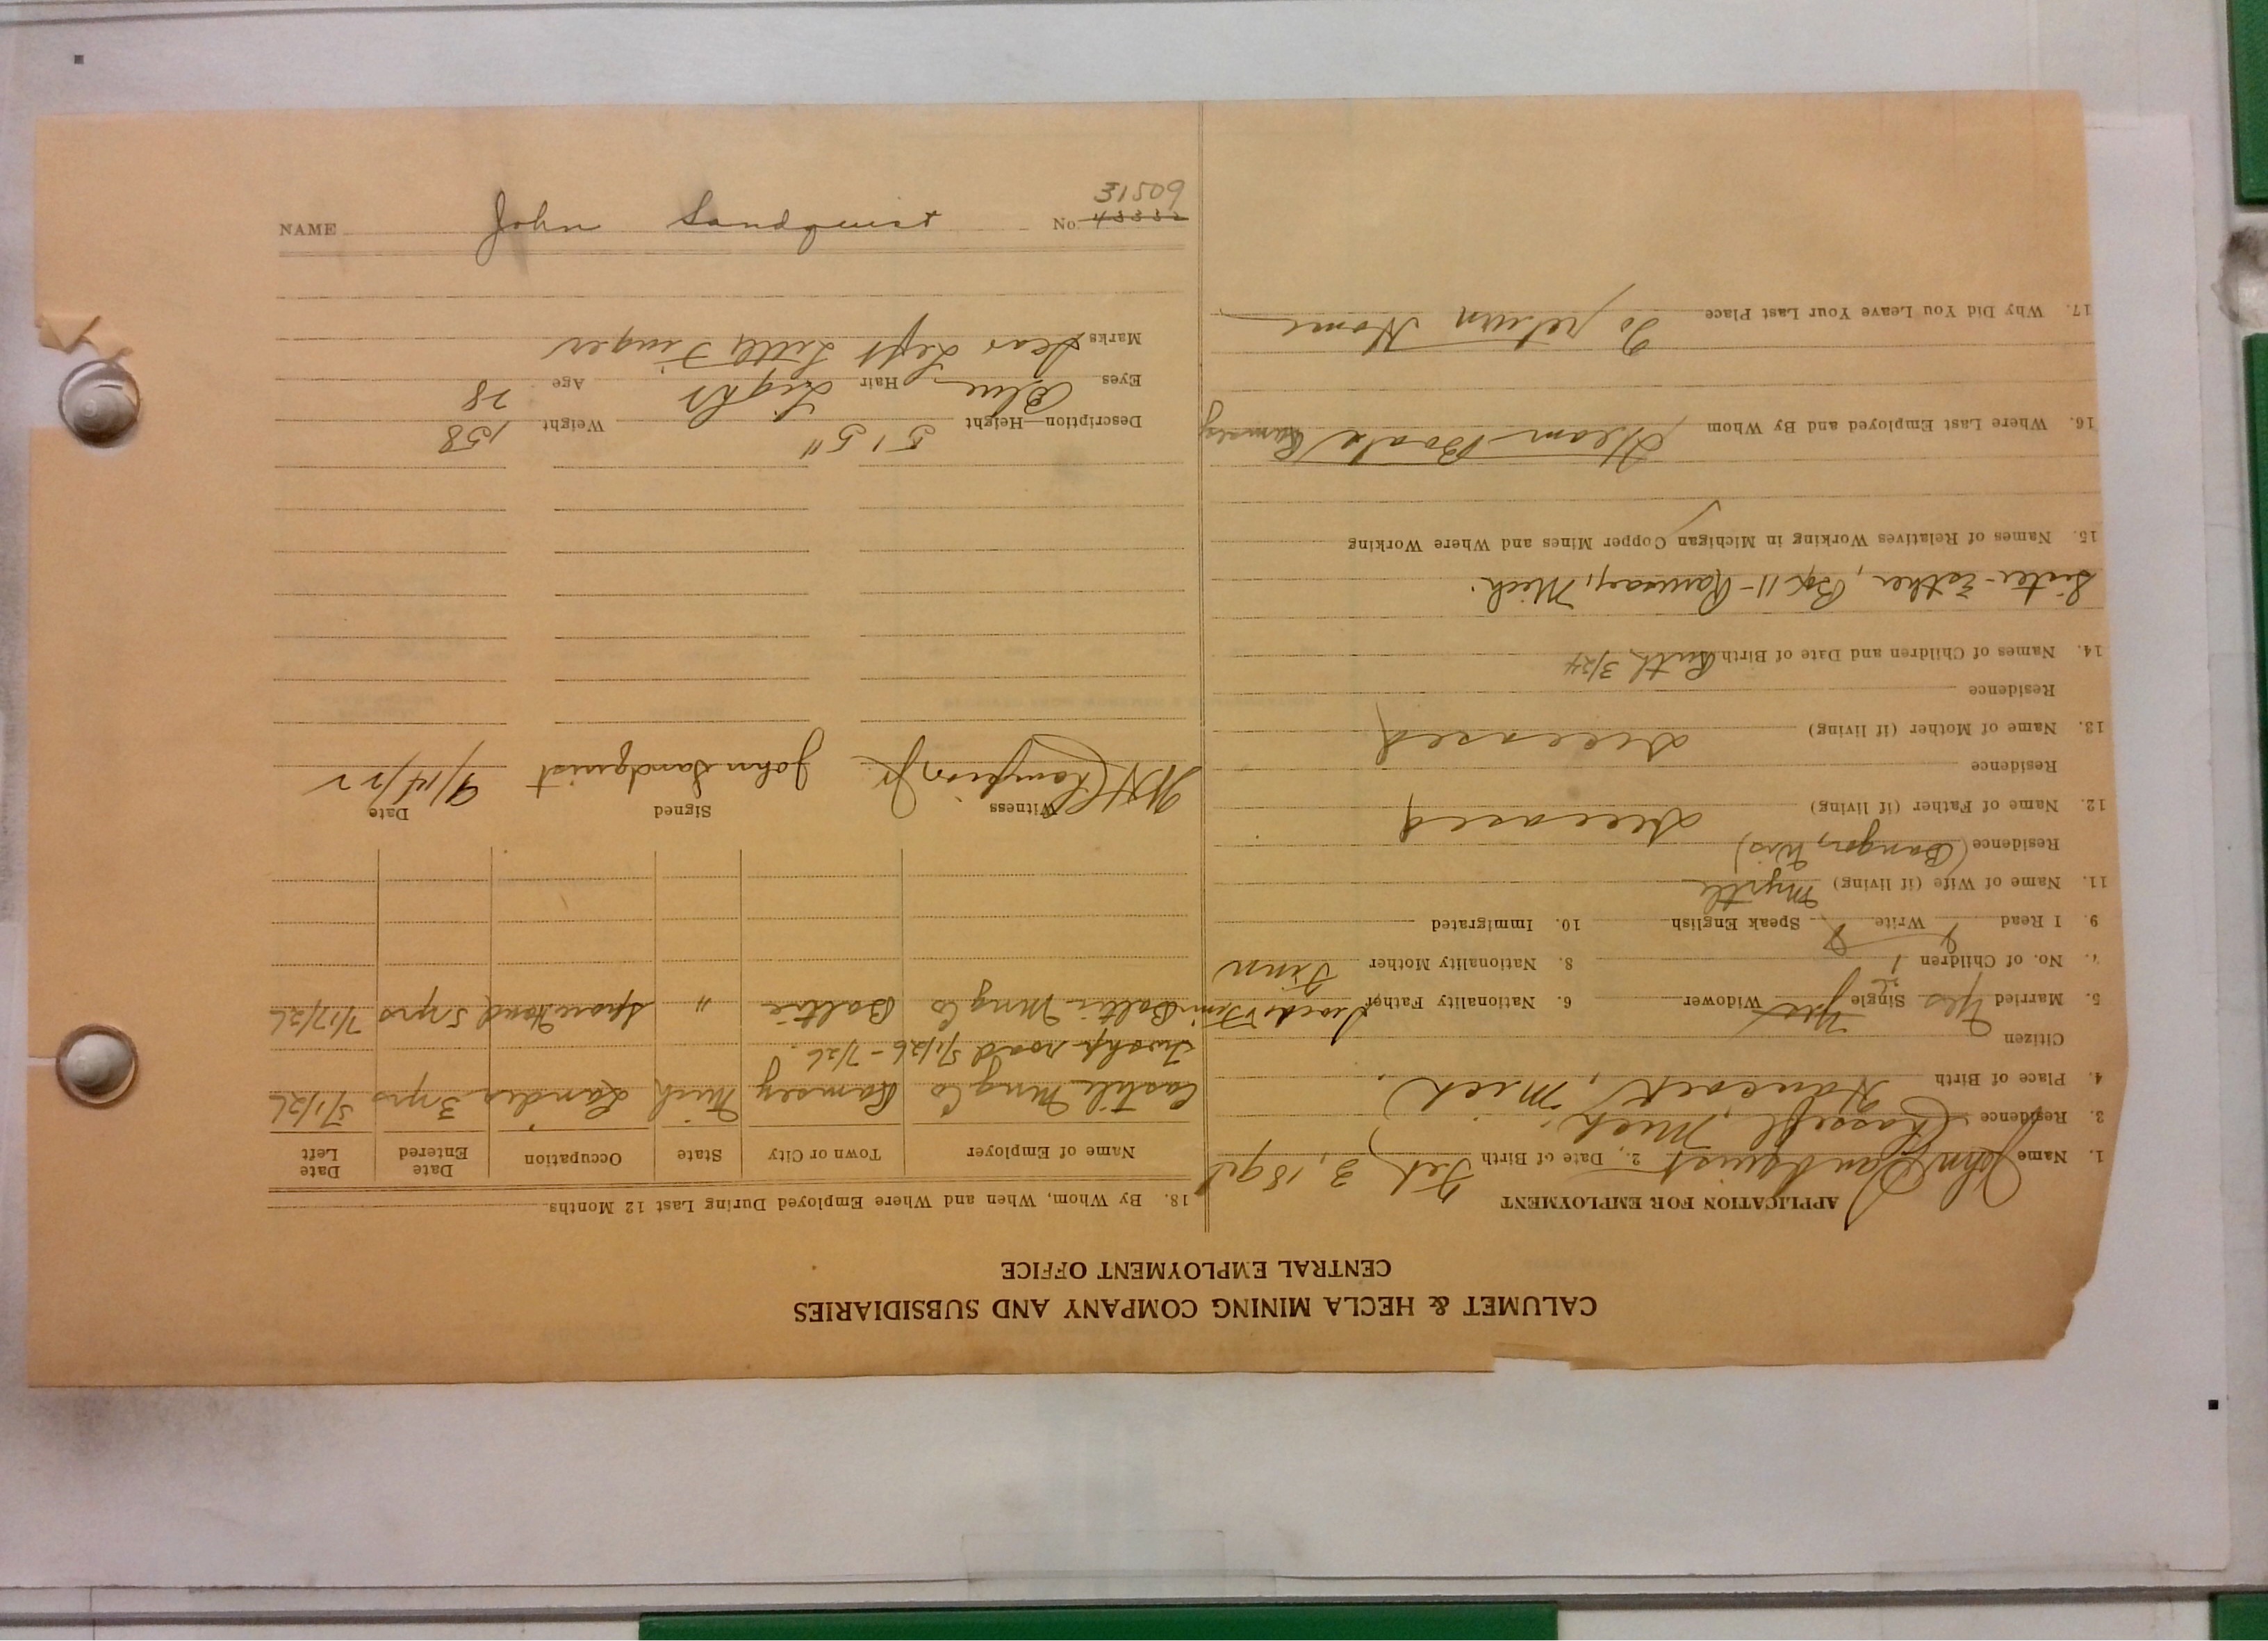 NAME John Sandquist No. 43332
31509
CALUMET & HECLA MINING COMPANY AND SUBSIDIARIES
CENTRAL EMPLOYMENT OFFICE
APPLICATION FOR EMPLOYMENT
1. Name John Sandquist 2. Date of Birth Feb 3, 189
3. Residence Chassell Mich
4. Place of Birth Hancock, Mich
Citizen
5. Married Yes Single Widower 6. Nationality Father Swede Finn
7. No. of Children 1 8. Nationality Mother Finn
9. I Read Write Speak English 10. Immigrated
11. Name of Wife (if living) Myrtle
Residence (Bangor, Wis)
12. Name of Father (if living) deceased
Residence
13. Name of Mother (if living) deceased
Residence
14. Names of Children and Date of Birth Ruth 3/24
Sister-Esther, Box 11-Ramsay, Mich.
15. Names of Relatives Working in Michigan Copper Mines and Where Working
16. Where Last Employed and By Whom Steam Boats Ramsay
17. Why Did You Leave Your Last Place To return Home
18. By Whom, When and Where Employed During Last 12 Months
Name of Employer Town or City State Occupation Date Entered Date Left
Castile Mng Co Ramsey Mich Lander 3 yrs 5/1/26
Twshp road 5/1/26-7/26.
Baltic Mng Co Baltic " Spare Hand 5 yrs 7/17/26
Witness Signed Date
W H Champion Jr. John Sandquist 9/14/22
Description—Height 5' 5" Weight 158
Eyes Blue Hair Light Age 28
Marks Scar Left Little Finger